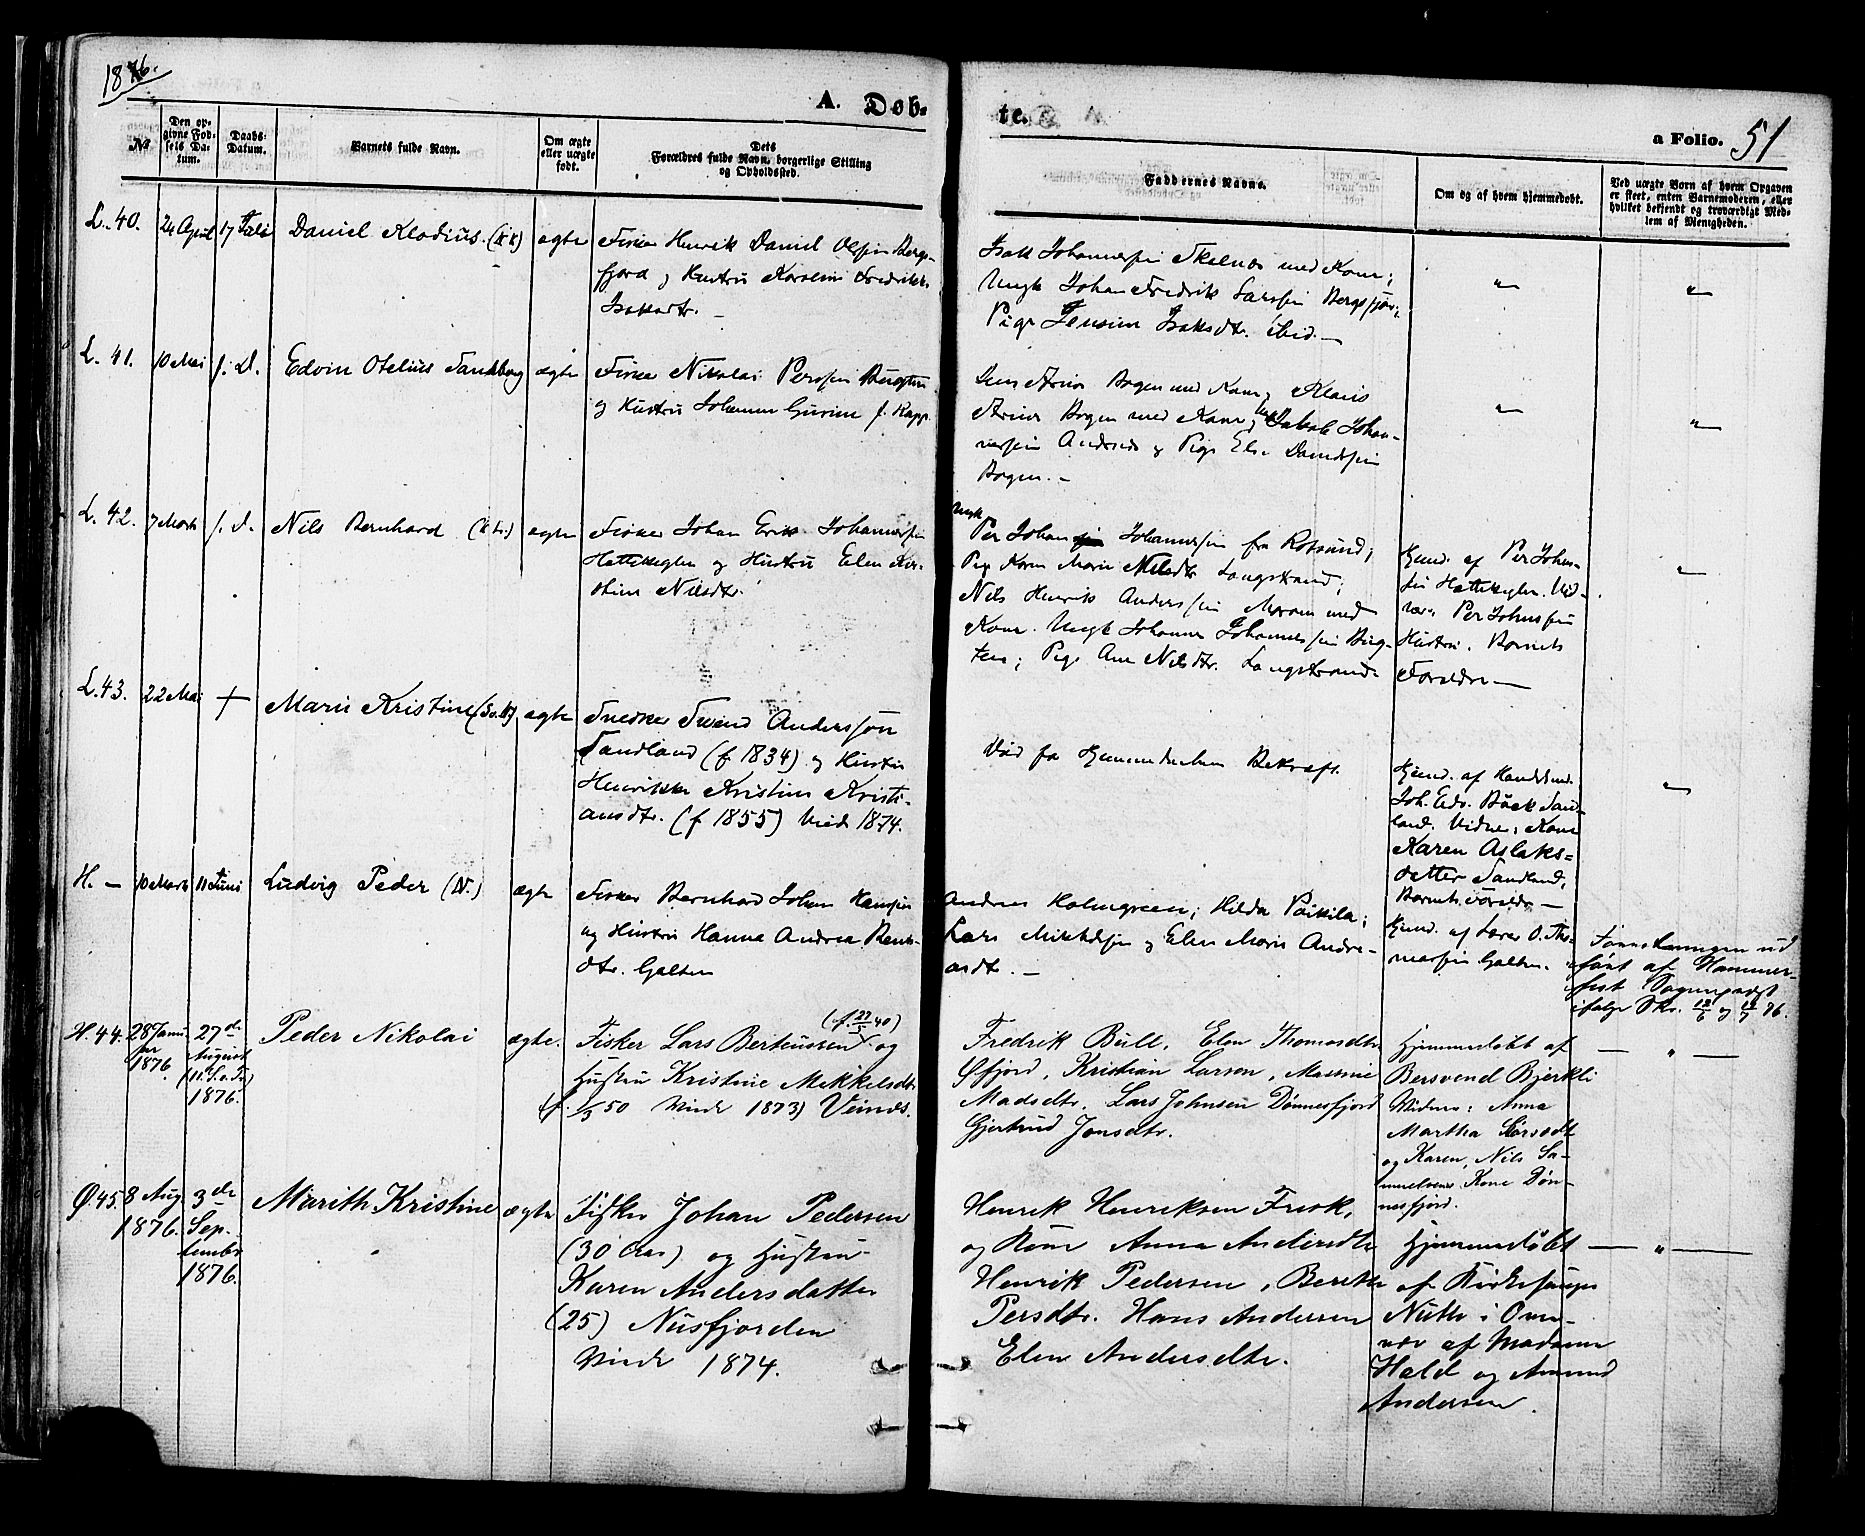 1876.
A. Døb-
te.
a Folio. 51
№
Den op-
givne Fød-
sels Da-
tum.
Daabs-
Datum.
Barnets fulde Navn.
Om ægte
eller uægte
født.
Dets
Forældres fulde Navn, borgerlige Stilling
og Opholdssted.
Faddernes Navne.
Om og af hvem hjemmedøbt.
Ved uægte Børn af hvem Opgaven
er skeet, enten Barnemoderen, eller
hvilket bekjendt og troværdigt Med-
lem af Menigheden.
L. 40.
24 April
17 Juli
Daniel Klodius.
ægte
Fisker Henrik Daniel Olsen Bergs-
fjord og Hustru Karoline Fredrikke
Isaksdtr. —
Isak Johannessen Skalnes med Kone;
Ungk Johan Fredrik Larssen Bergsfjor;
Pige Jensine Isaksdtr. ibid. —
"
"
L. 41.
10 Mai
s. D.
Edvin Otelius Sandberg
ægte
Fisker Nikolai Perssen
og Hustru Johanna Gurine f. Rapp.
Bogen med Kone, Klaus
Bogen med Kone, Jakob Johan-
nessen og Pige Else
Bogen. —
"
"
L. 42.
7 Marts
s. D.
Nils Bernhard
ægte
Fisker Johan Erik Johannessen
Hatteveglen og Hustru Elen Kir-
stine Nilsdtr.
Ungk
Per Johan Johannessen fra Rotsund;
Pige Karen Marie Nilsdtr Langstrand;
Nils Henrik Anderssen med
Kone. Ungk Johannes Johannessen
Pige Ane Nilsdtr. Langstrand
Hjemd. af Per Johns-
sen Hatteveglen. Vid-
ner: Per Johnssens
Hustru. Barnets
Forældre —
"
L. 43.
22 Mai
+
Marie Kristine
ægte
Snedker Svend Anderssøn
Sandland (f 1834) og Hustru
Henrikke Kristine Kristi-
ansdtr. (f 1855) Viede 1874.
Død før Hjemmedaabens Bekræft.
Hjemd. af Handelsmd.
Joh. Edv. Båck Sand-
land. Vidner: Kone
Karen Aslaks-
datter Sandland,
Barnets Forældre —
"
H. —
10 Marts
11 Juni
Ludvig Peder (N.)
ægte
Fisker Bernhard Johan Hansen
og Hustru Hanna Andrea
dtr. Galten
Andreas Holmgreen; Hilda Paikila;
Lars Mikkelsen og Elen Marie Andre-
asdtr. —
Hjemd. af Lærer O. Tho-
massen Galten.
ført af Hammer-
fest Sognepræst
ifølge Skr.
H. 44.
28 Janu
ar
1876
27de
August
(11. S. e. Tr.)
1876.
Peder Nikolai
ægte.
(f. 27/5 40)
Fisker Lars Berteussen og
Hustru Kristine Mikkelsdtr
(f. 1/5 50 Viede 1873) Veines.
Fredrik Bull, Elen Thomasdtr
Øfjord, Kristian Larsen,
Madsdtr. Lars Johnsen Dønnesfjord
Gjertrud Jonsdtr.
Hjemmedøbt af
Bersvend Bjerkli
Vidner: Anna
Martha Larsdtr
og Karen, Nils Sa-
muelsens Kone Døn-
nesfjord.
— " —
Ø. 45.
8 Aug
1876.
3de
Sep-
tember
1876.
Marith Kristine
ægte
Fisker Johan Pedersen
(30 Aar) og Hustru
Karen Andersdatter
(25) Nusfjorden
Viede 1874.
Henrik Henriksen Frisk,
og Kone Anna Andersdtr
Henrik Pedersen, Berith
Persdtr. Hans Andersen
Elen Andersdtr.
Hjemmedøbt
af Kirkesanger
i
af Madame
Hald og Amund
Andersen.
— " —